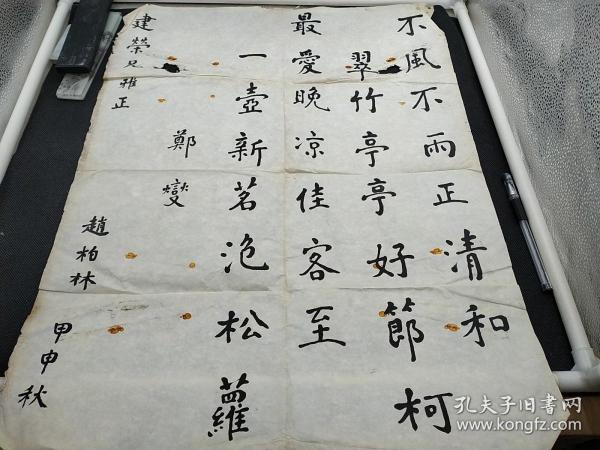 不風不雨正清和
翠竹亭亭好節柯
最愛晚凉佳客至
一壺新茗泡松蘿
鄭燮
建榮兄雅正
趙柏林
甲申秋
孔夫子旧书网
www.kongfz.com